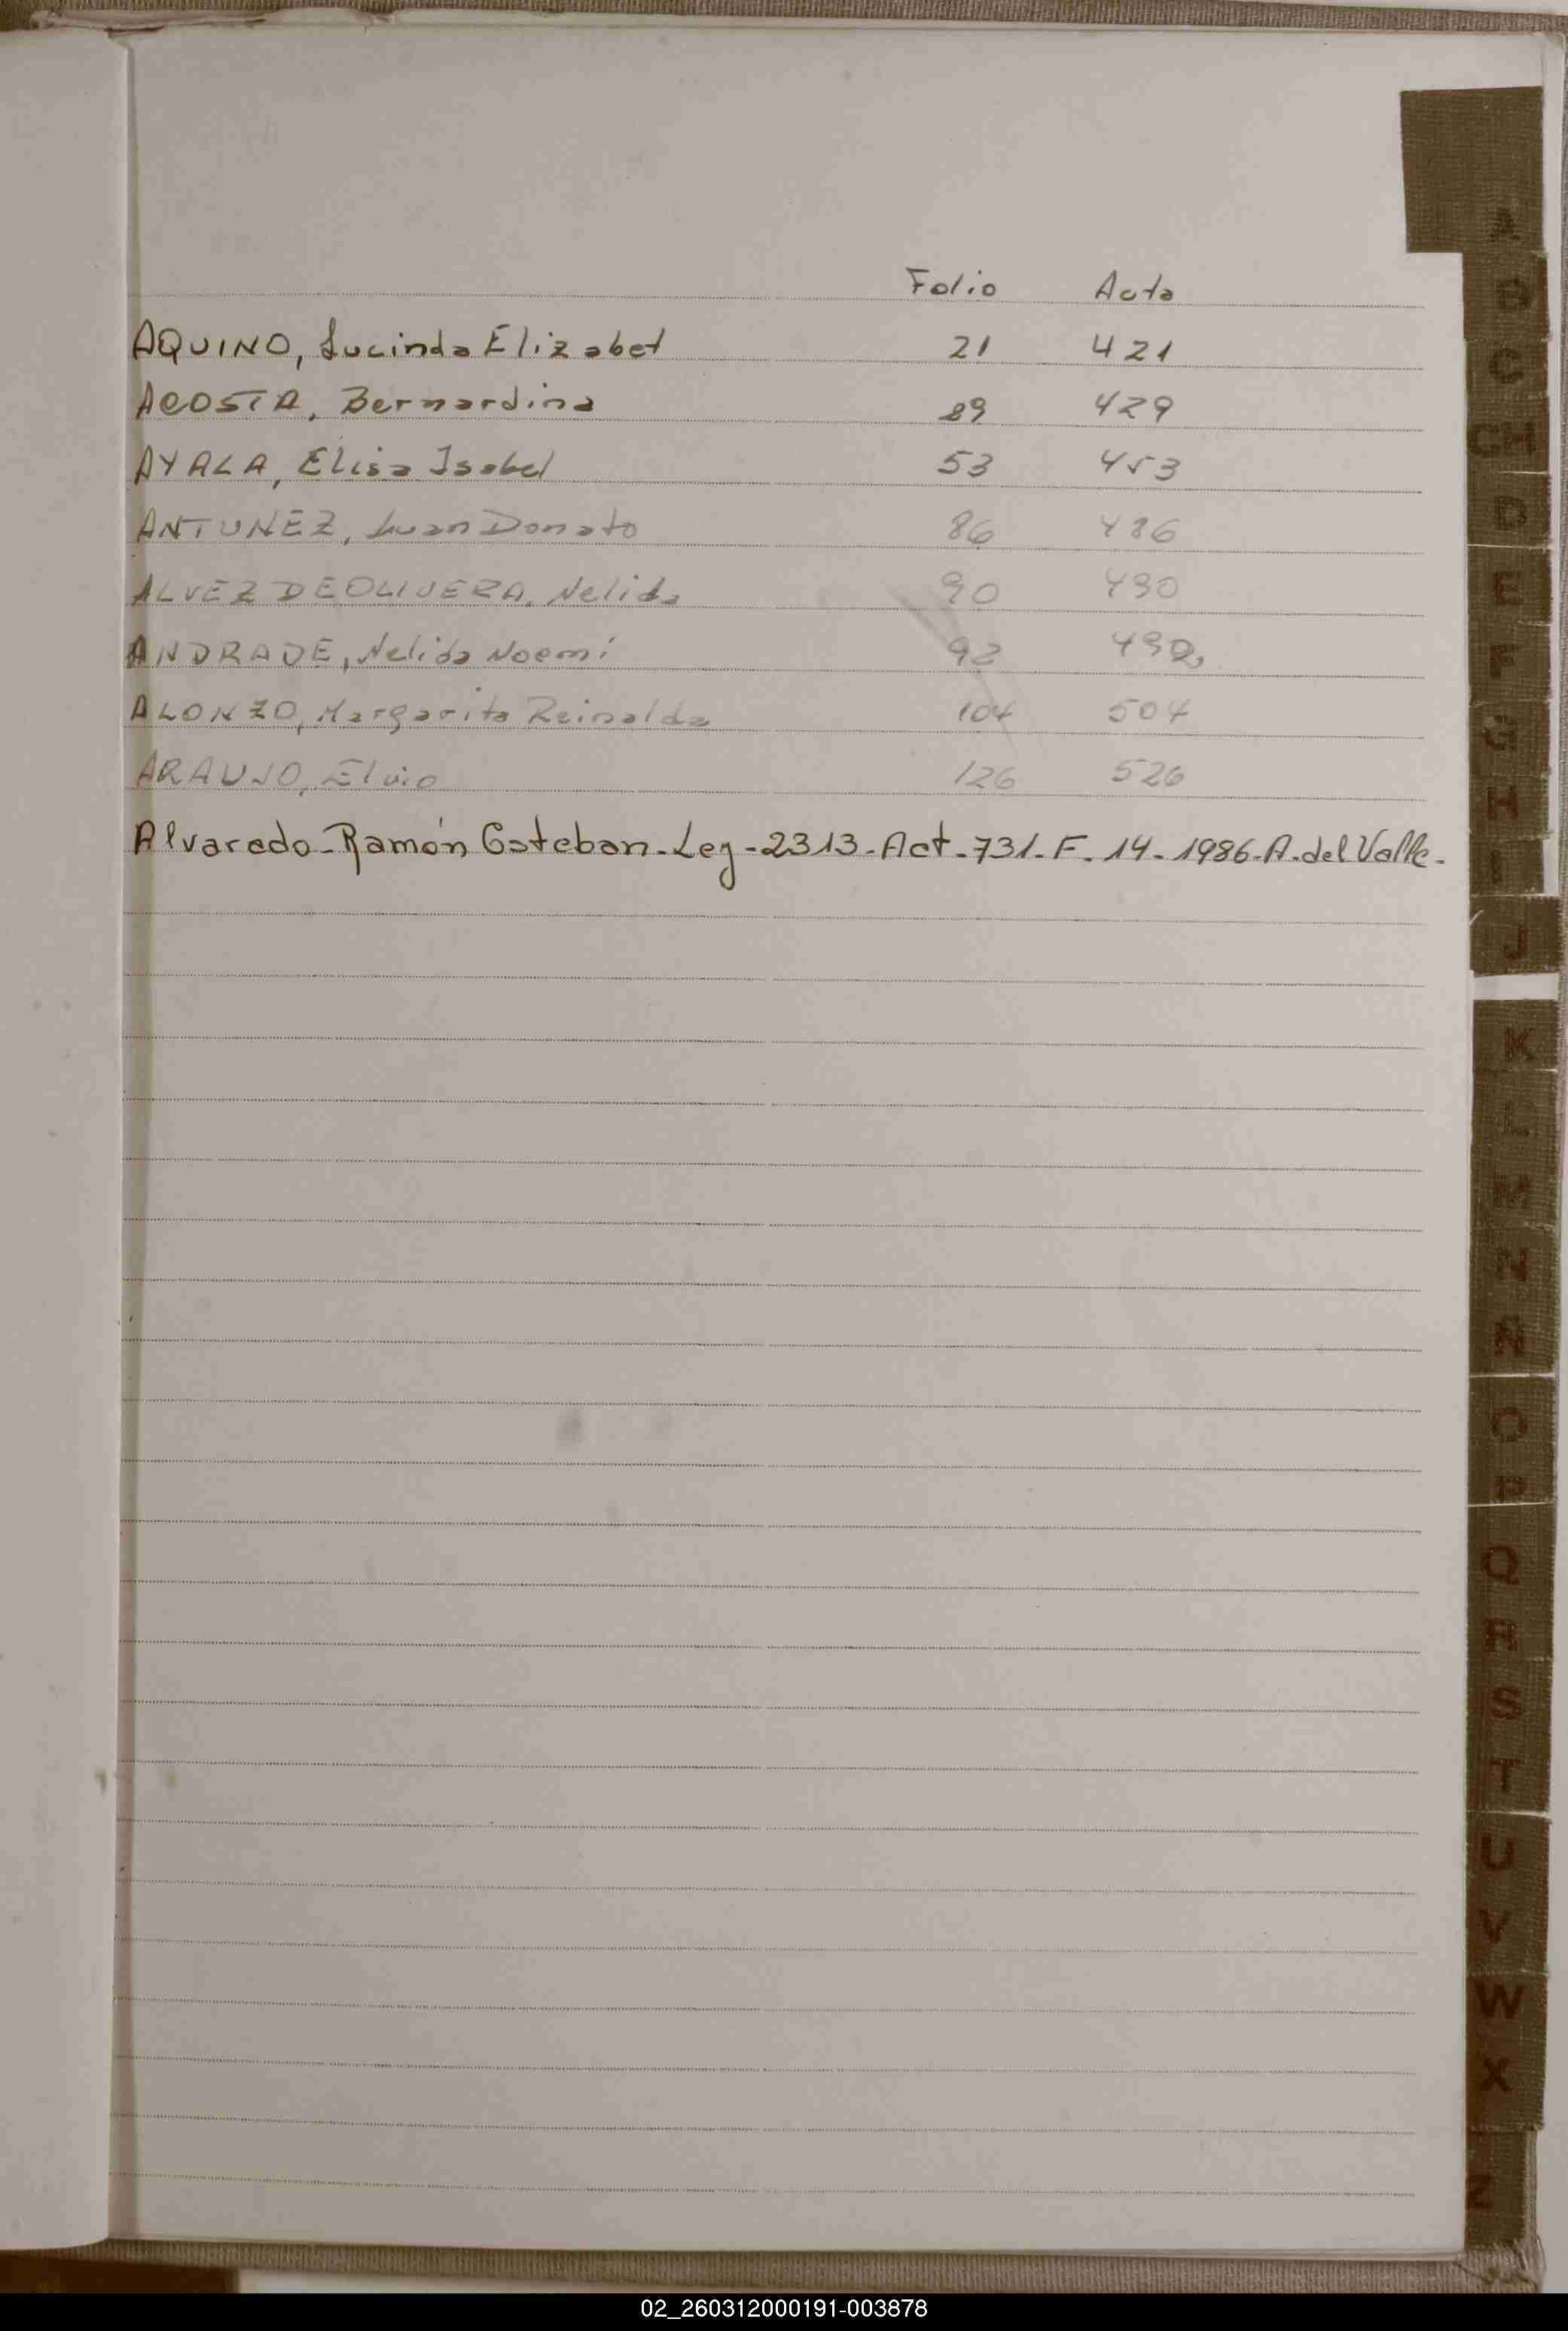 Folio Acta
AQUINO, Lucinda Elizabet 21 421
ACOSTA, Bernardina 29 429
AYALA, Elisa Isabel 53 453
ANTUNEZ, Juan Donato 86 486
ALVEZ DE OLIVERA, Nelida 90 490
ANDRADE, Nelida Noemí 92 492
ALONZO, Margarita Reinalda 104 504
ARAUJO, Elvio 126 526
Alvaredo-Ramón Esteban-Leg-2313-Act-731-F. 14-1986-A. del Valle-
A
B
C
CH
D
E
F
G
H
I
J
K
L
M
N
Ñ
O
P
Q
R
S
T
U
V
W
X
Z
02_260312000191-003878